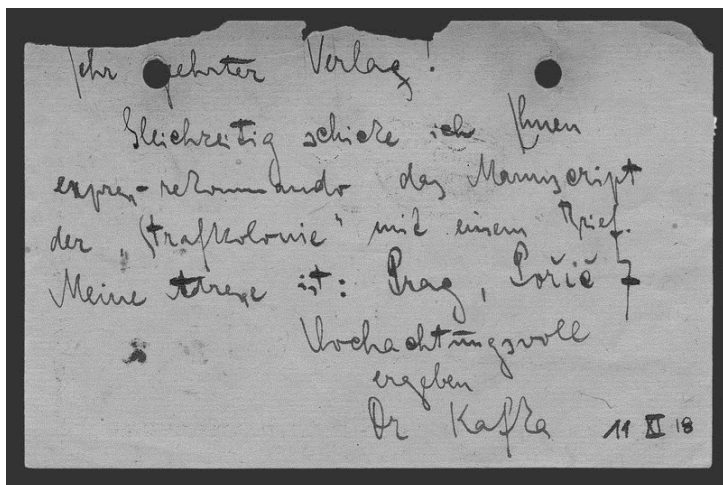 Sehr geehrter Verlag!
Gleichzeitig schicke ich Ihnen
express-rekommando das Manuscript
der „Strafkolonie" mit einem Brief.
Meine Adresse ist: Prag, Poříč 7
Hochachtungsvoll
ergeben
Dr Kafka 11 XI 18